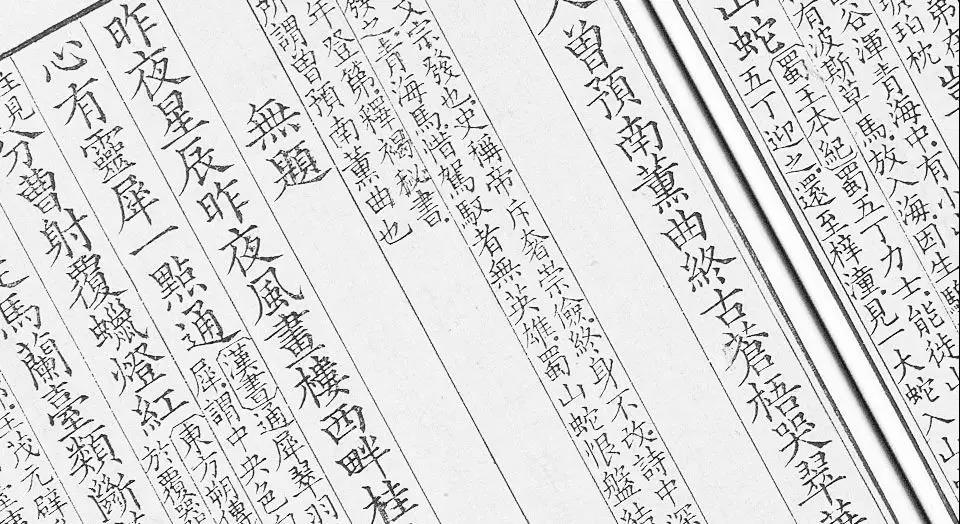 弟在
琥珀枕
谷渾青海中有小
有波斯草馬放入海因生驄
山蛇
蜀王本紀蜀五丁力士能徙山
五丁迎之還至梓潼見一大蛇入山
曽預南薰曲終古蒼梧哭翠華
文宗發也史稱帝斥奢崇儉終身不改詩中深
發之青海馬嘅駕馭者無英雄蜀山蛇恨盤結
年登第釋褐秘書
所謂曽預南薰曲也
無題
昨夜星辰昨夜風畫樓西畔桂
心有靈犀一點通
漢書通犀翠羽
犀謂中央色白
分曹射覆蠟燈紅
東方朔傳
於覆
馬蘭臺類斷
茂元